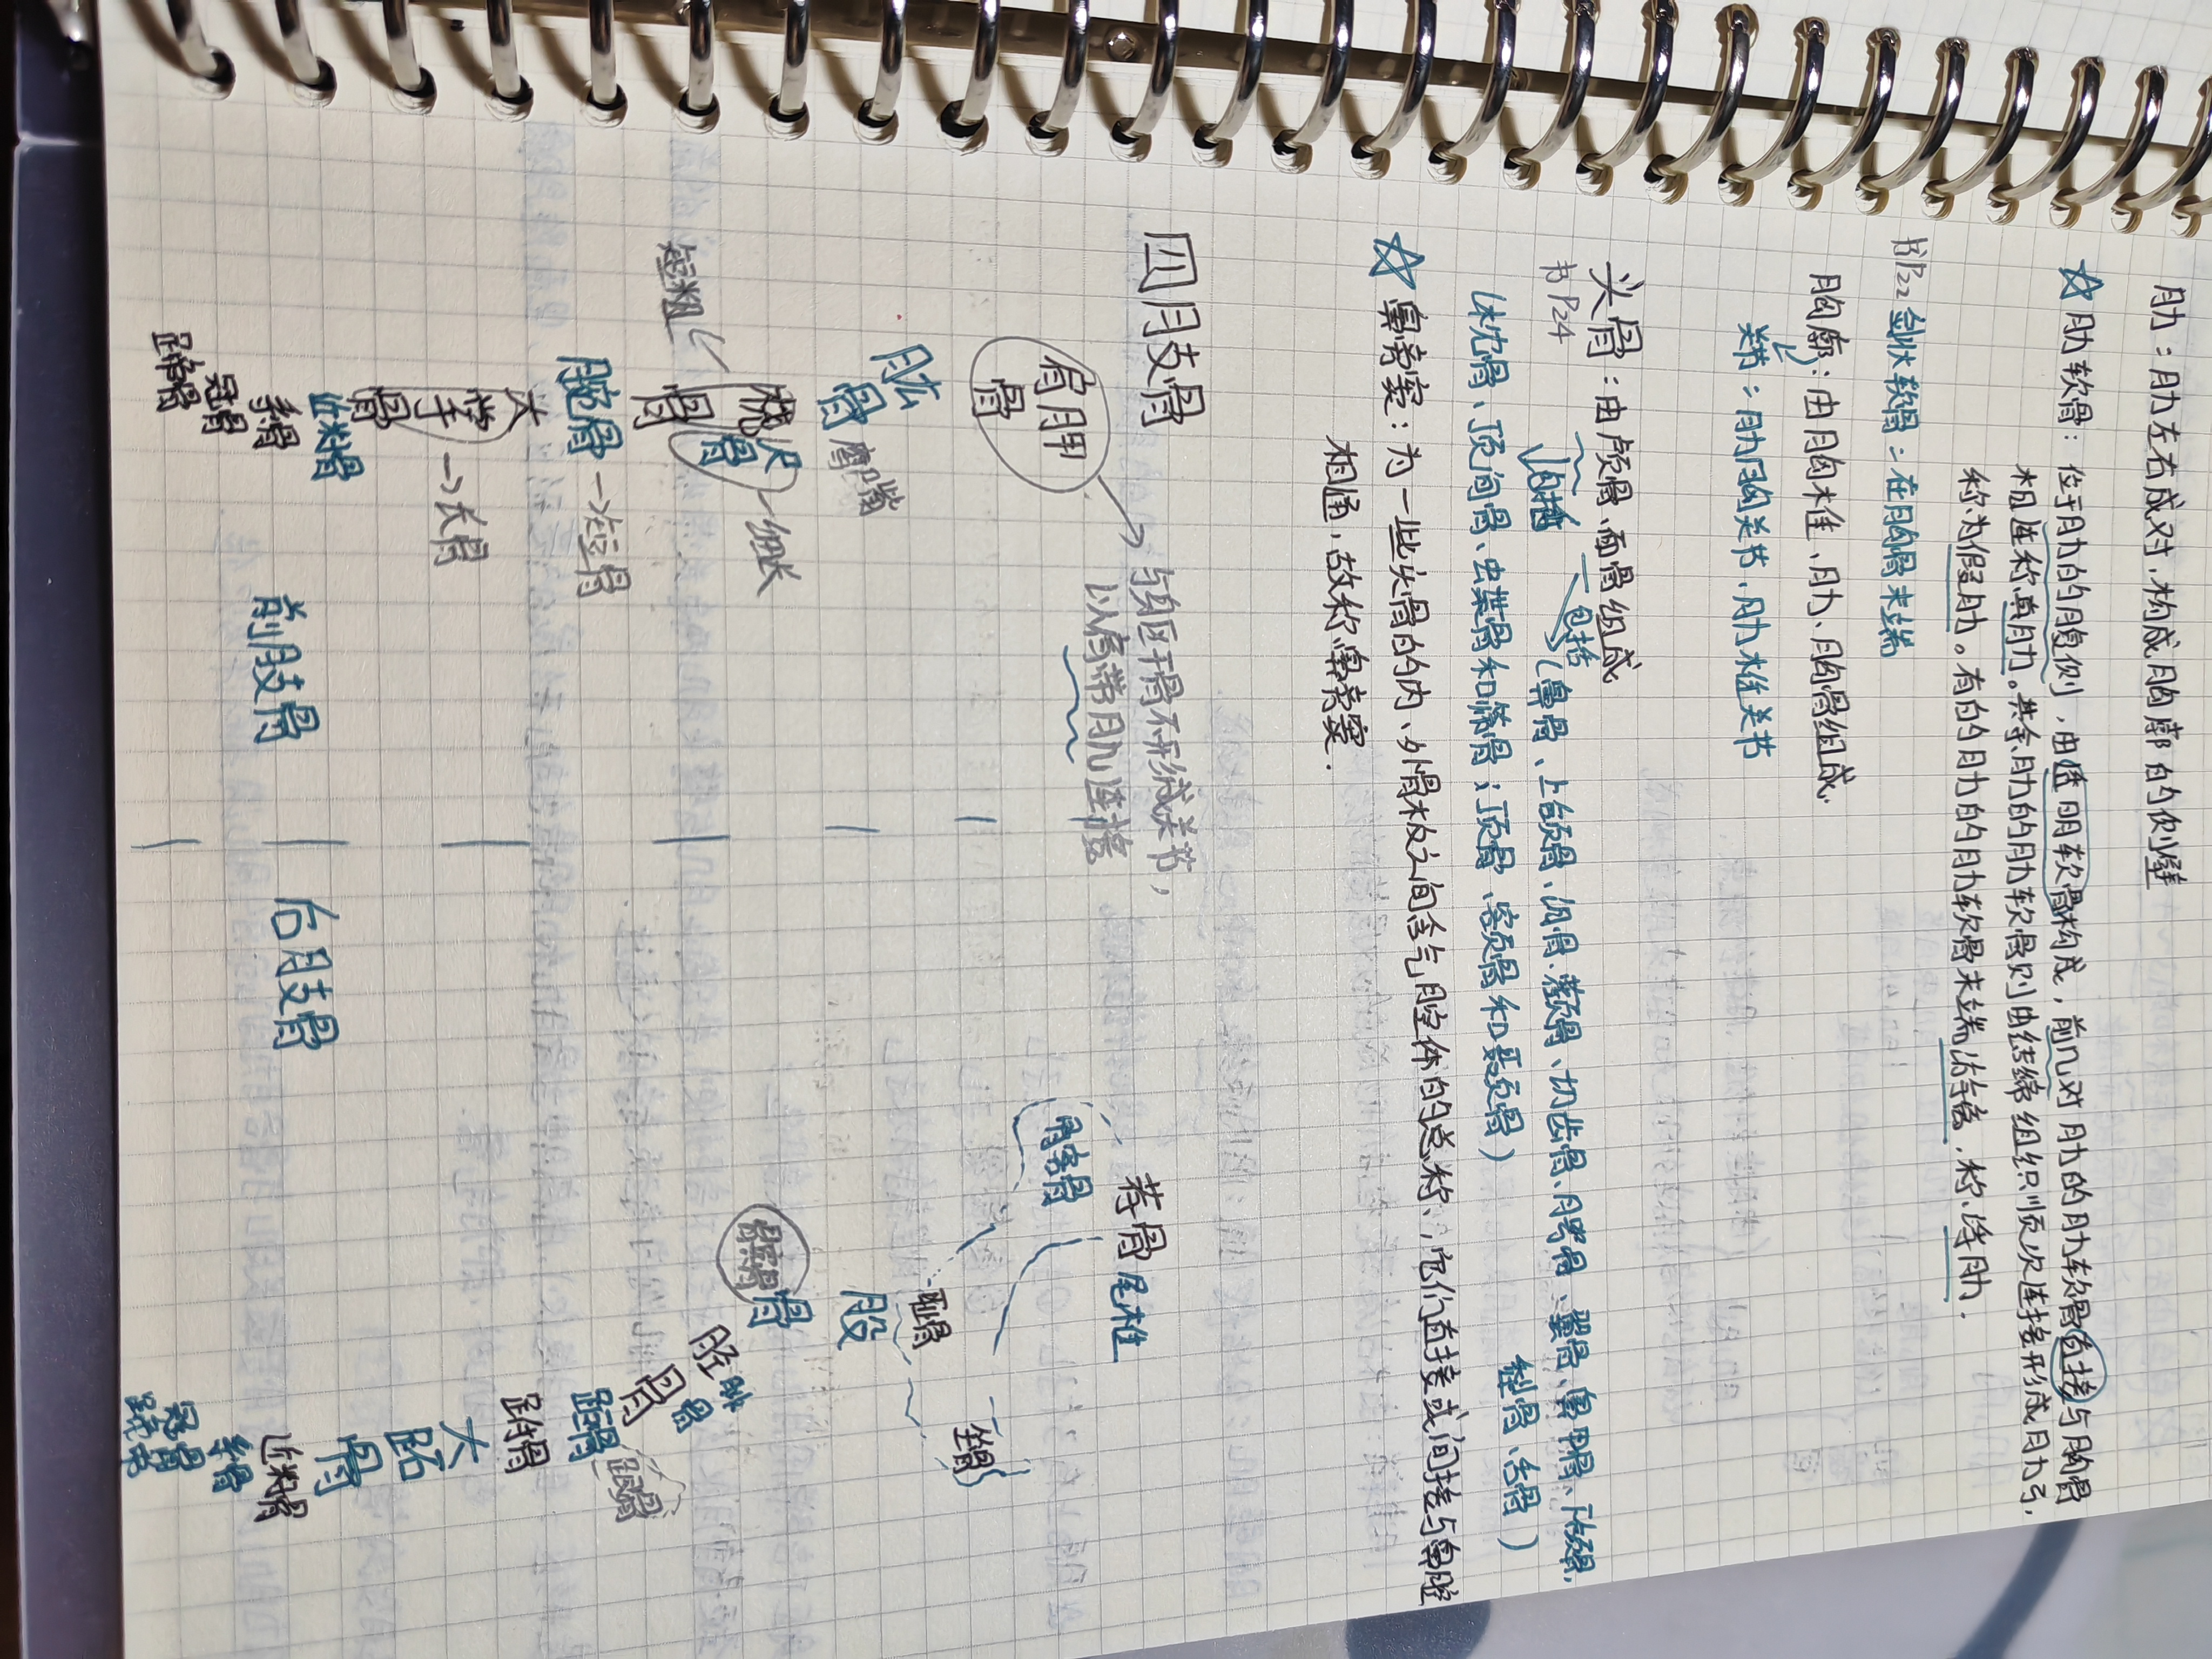 肋：肋左右成对，构成胸廓的侧壁
☆肋软骨：位于肋的腹侧，由透明软骨构成，前几对肋的肋软骨直接与胸骨
相连称真肋。其余肋的肋软骨则由结缔组织顺次连接形成肋弓，
称为假肋。有的肋的肋软骨末端游离，称浮肋.
书P22 剑状软骨：在胸骨末端
胸廓：由胸椎、肋、胸骨组成.
关节：肋胸关节、肋椎关节
头骨：由颅骨、面骨组成
书P24
包括
包括（鼻骨、上颌骨、泪骨、颧骨、切齿骨、腭骨、翼骨、鼻甲骨、下颌骨，
犁骨、舌骨）
（枕骨、顶间骨、蝶骨和筛骨；顶骨、额骨和颞骨）
☆鼻旁窦：为一些头骨的内、外骨板之间含气腔体的总称，它们直接或间接与鼻腔
相通，故称鼻旁窦.
四肢骨
肩胛骨
与躯干骨不形成关节，
以肩带肌连接
荐骨 尾椎
髂骨
肱骨
耻骨
坐骨
股骨
桡骨
尺骨
细长
短粗
髌骨
腓骨
胫骨
腕骨→短骨
距骨
跟骨
跗骨
大掌骨
→长骨
大跖骨
近籽骨
近籽骨
系骨
系骨
冠骨
冠骨
蹄骨
蹄骨
前肢骨
后肢骨